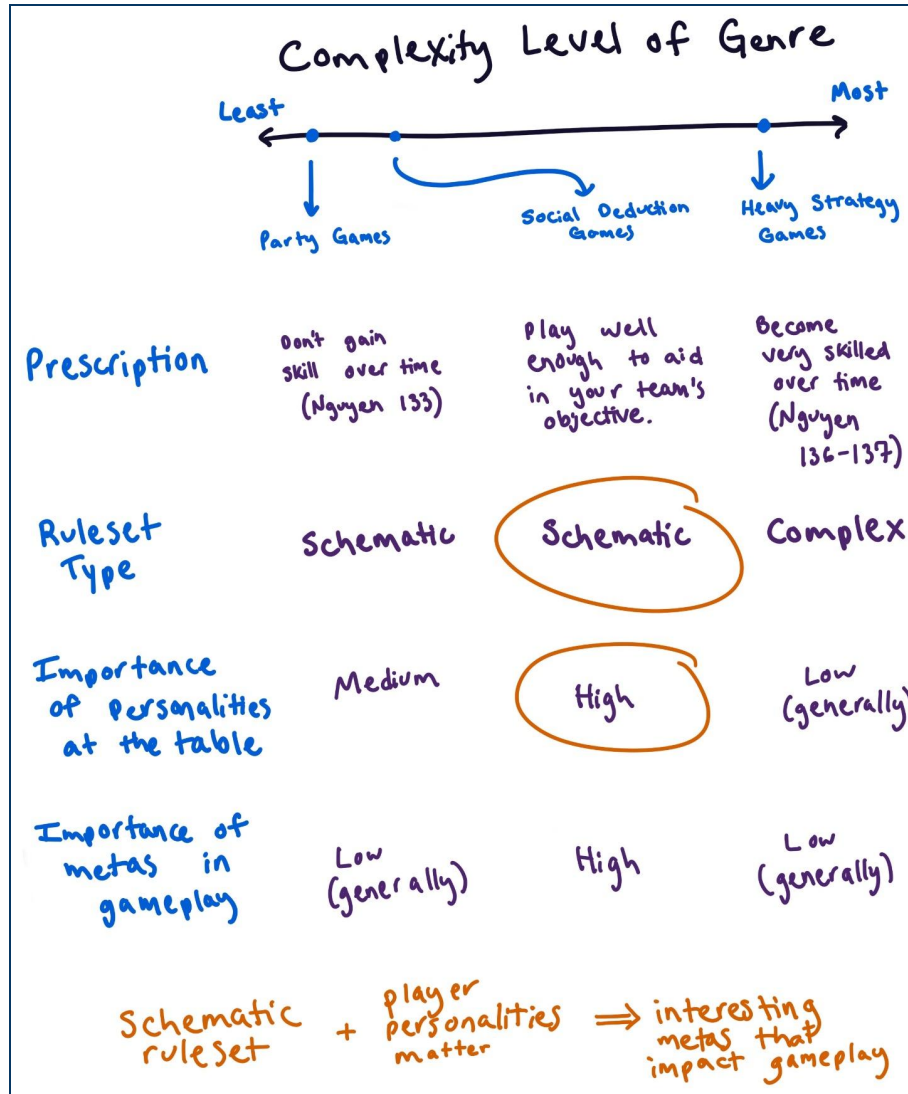 Complexity Level of Genre
Least
Most
Party Games
Social Deduction
Games
Heavy Strategy
Games
Prescription
Don't gain
skill over time
(Nguyen 133)
Play well
enough to aid
in your team's
objective.
Become
very skilled
over time
(Nguyen
136-137)
Ruleset
Type
Schematic
Schematic
Complex
Importance
of personalities
at the table
Medium
High
Low
(generally)
Importance of
metas in
gameplay
Low
(generally)
High
Low
(generally)
Schematic
ruleset
+
player
personalities
matter
⇒
interesting
metas that
impact gameplay